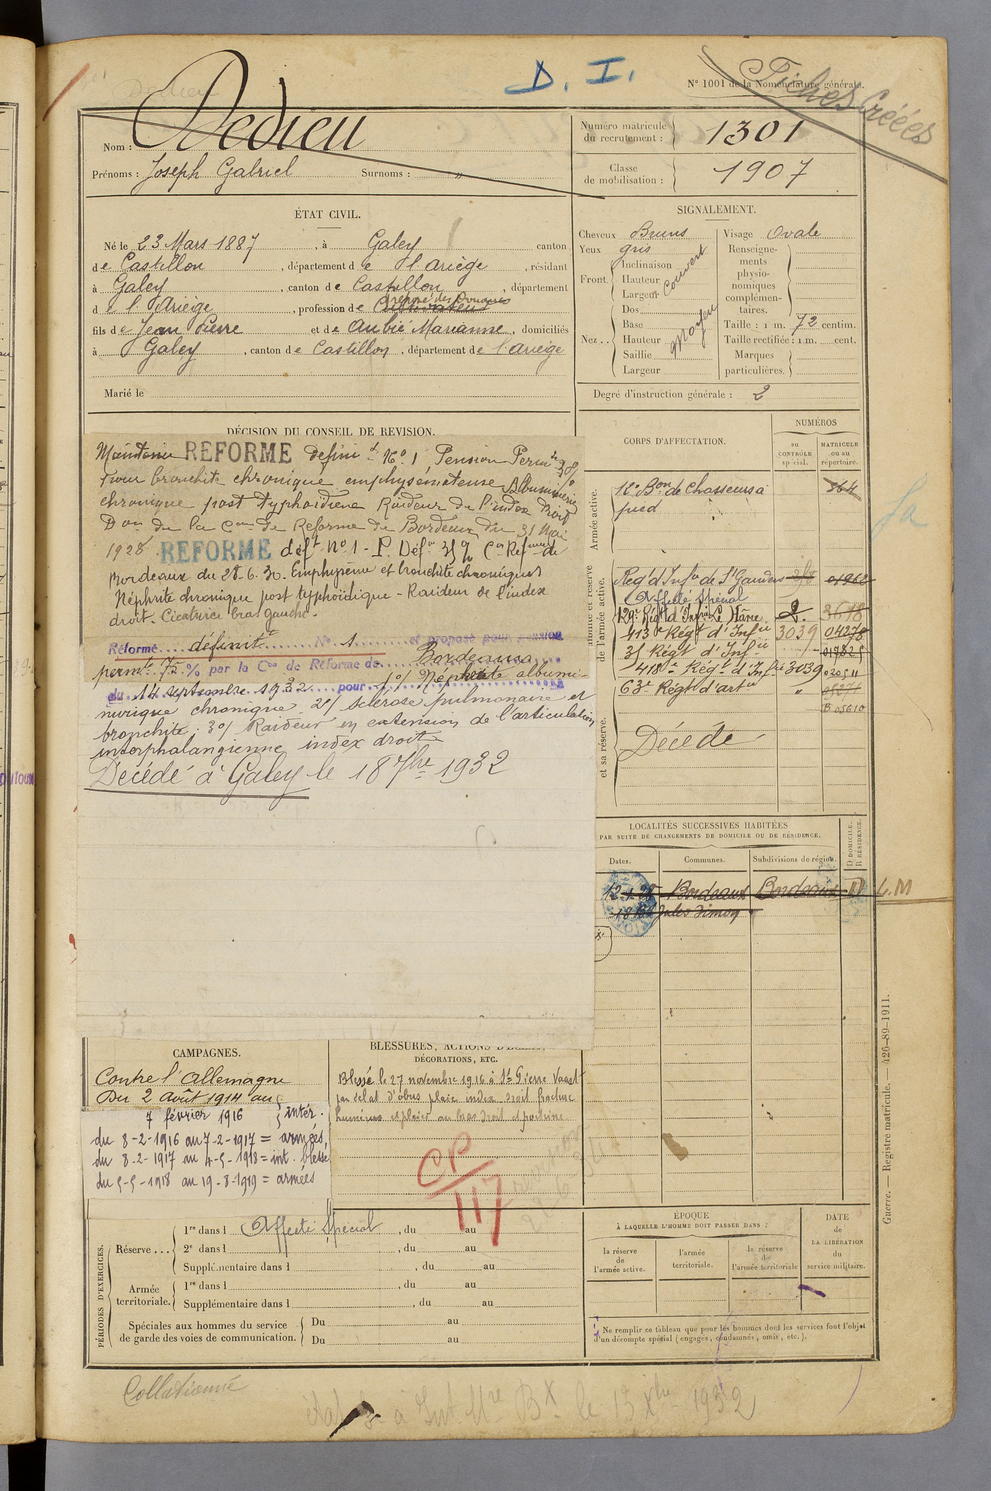 D. I.
N° 1001 de la Nomenclature générale.
Fiches Créées
Nom : Dedieu
Prénoms : Joseph Gabriel Surnoms : "
Numéro matricule du recrutement : 1301
Classe de mobilisation : 1907
ÉTAT CIVIL.
Né le 23 Mars 1887, à Galey canton
de Castillon, département de l'Ariège, résidant
à Galey, canton de Castillon, département
de l'Ariège, profession de Cultivateur préposé des Douanes
fils de Jean Pierre et de Aubié Marianne, domiciliés
à Galey, canton de Castillon, département de l'Ariège
Marié le
SIGNALEMENT.
Cheveux Bruns Visage Ovale
Yeux gris
Front. Inclinaison Hauteur Largeur couvert
Nez.. Dos Base Hauteur Saillie Largeur Moyen
Renseignements physionomiques complémentaires.
Taille : 1 m. 72 centim.
Taille rectifiée : 1 m. cent.
Marques particulières.
Degré d'instruction générale : 2
DÉCISION DU CONSEIL DE REVISION.
Maintenu REFORME défini t N° 1 Pension Perm te 35 %
Pour bronchite chronique emphysémateuse Albuminerie
chronique post typhoïdiene Raideur de l'index droit
D on de la C on de Reforme de Bordeaux du 31 Mai
1928. REFORME déf t N° 1 - P. Déf ve 35 % C on Ref me de
Bordeaux du 28.6.30. Emphysème et bronchite chroniques
Néphrite chronique post typhoïdique - Raideur de l'index
droit. Cicatrice bras gauche.
Réformé définit t N° 1 et proposé pour pension
perm te 75 % par la C on de Réforme de Bordeaux
du 14 septembre 1932 pour 1°/ Néphrite albumi-
nurique chronique 2°/ sclérose pulmonaire et
bronchite; 3°/ Raideur en extension de l'articulation
interphalangienne index droit
Décédé à Galey le 18 7bre 1932
CORPS D'AFFECTATION.
NUMÉROS
DU CONTRÔLE spécial.
MATRICULE ou au répertoire.
Armée active.
16e B on de Chasseurs à pied 364
Disponibilité et réserve de l'armée active.
Rég t d'Inf ie de St Gaudens 01962
Affecté Spécial
129e Rég t d'Inf ie Le Hâvre 2. 3618
413e Rég t d'Inf ie 3039 04278
35 Rég t d'Inf ie
418e Rég t d'Inf ie 3039 020511
63e Rég t d'art ie "
B 05610
et sa réserve.
Décédé
LOCALITÉS SUCCESSIVES HABITÉES
PAR SUITE DE CHANGEMENTS DE DOMICILE OU DE RÉSIDENCE.
Dates. Communes. Subdivisions de région. D DOMICILE. R RÉSIDENCE.
Bordeaux Bordeaux D L.M
Jules Simon
CAMPAGNES.
Contre l'Allemagne
Du 2 Août 1914 au
7 février 1916 } intér.
du 8-2-1916 au 7-2-1917 = armées
du 8-2-1917 au 4-5-1918 = int. blessé
du 5-5-1918 au 19-8-1919 = armées
BLESSURES, ACTIONS D'ÉCLAT,
DÉCORATIONS, ETC.
Blessé le 27 novembre 1916 à St Pierre Vaast
par éclat d'obus plaie index droit fracture
humérus et plaie au bras droit et poitrine
CP
117
PÉRIODES D'EXERCICES.
Réserve... 1re dans l Affecté Spécial, du au
2e dans l, du au
Supplémentaire dans l, du au
Armée territoriale. 1re dans l, du au
Supplémentaire dans l, du au
Spéciales aux hommes du service de garde des voies de communication. Du au
Du au
ÉPOQUE
À LAQUELLE L'HOMME DOIT PASSER DANS :
la réserve de l'armée active.
l'armée territoriale.
la réserve de l'armée territoriale
DATE DE LA LIBÉRATION du service militaire.
Ne remplir ce tableau que pour les hommes dont les services font l'objet
d'un décompte spécial (engagés, condamnés, omis, etc.).
Guerre. — Registre matricule. — 426-89-1911.
Collationné